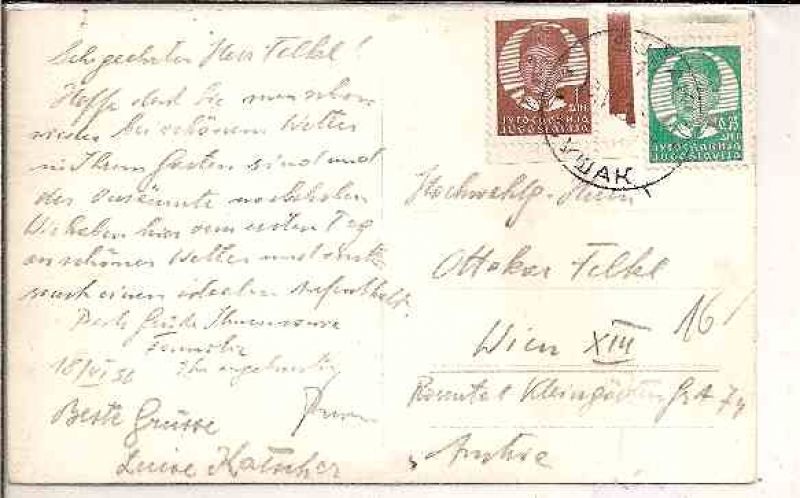 Sehr geehrter Herr Felkl!
Hoffe daß Sie nun schon
wieder bei schönem Wetter
in Ihrem Garten sind und
das Versäumte nachholen
Wir haben hier vom ersten Tag
an schönes Wetter und
auch einen idealen Aufenthalt.
Beste Grüße Ihnen sowie
Familie
Ihr ergebenster
18/VI 36
Beste Grüsse
Luise Katscher
1 ДИН
ЈУГОСЛАВИЈА
JUGOSLAVIJA
0.75
ДИН
ЈУГОСЛАВИЈА
JUGOSLAVIJA
УШАК
Hochwohlg. Herrn
Ottokar Felkl
Wien XIII
16/
Kleingärten Gr A 74
Austria